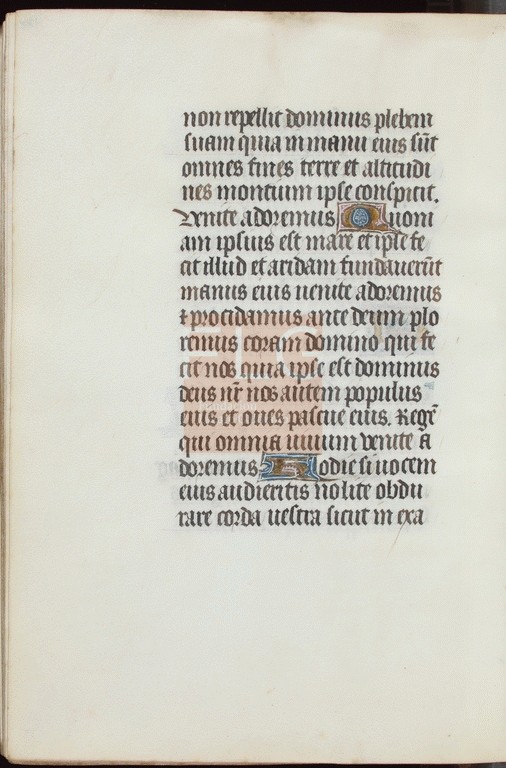 non repellit dominus plebem
suam quia in manu eius sūt
omnes fines terre et altitudi
nes montium ipse conspicit.
Venite adoremus Quoni
am ipsius est mare et ipse fe
cit illud et aridam fundauerūt
manus eius uenite adoremus
⁊ procidamus ante deum plo
remus coram domino qui fe
cit nos quia ipse est dominus
deus nr̄ nos autem populus
eius et oues pascue eius. Regē
qui omnia uiuum venite a
doremus Hodie si uocem
eius audieritis nolite obdu
rare corda uestra sicut in exa